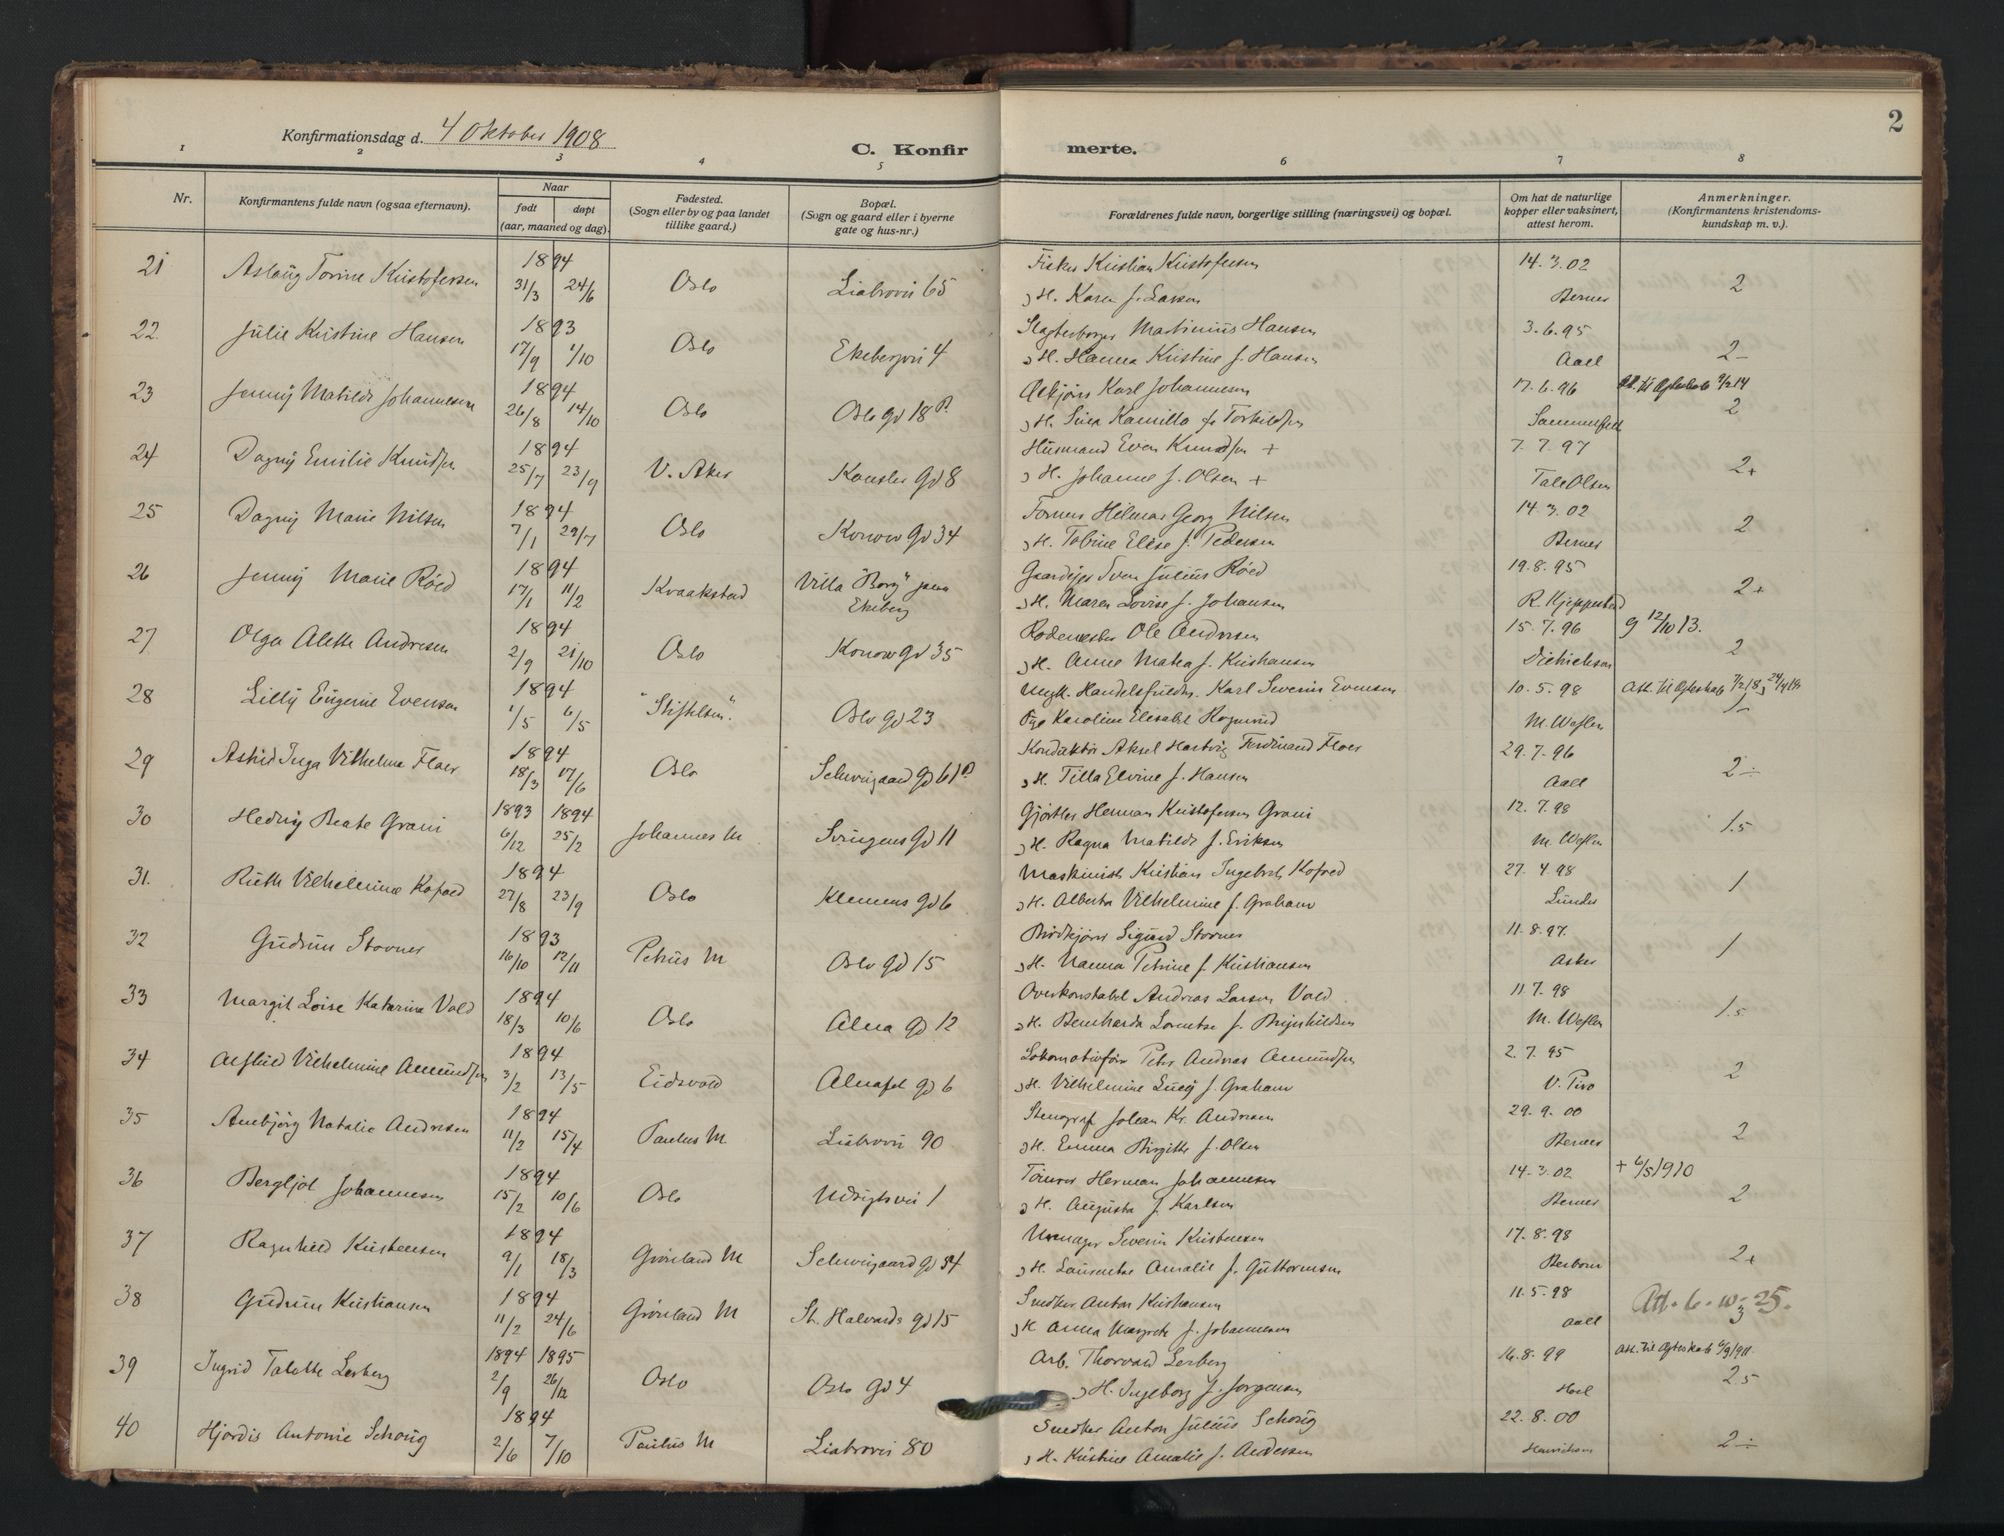 2
Konfirmationsdag d. 4 Oktober 1908
C. Konfir merte.
1 2 3 4 5 6 7 8
Nr.
Konfirmantens fulde navn (ogsaa efternavn).
Naar
født døpt
(aar, maaned og dag).
Fødested.
(Sogn eller by og paa landet
tillike gaard.)
Bopæl.
(Sogn og gaard eller i byerne
gate og hus-nr.)
Forældrenes fulde navn, borgerlige stilling (næringsvei) og bopæl.
Om hat de naturlige
kopper eller vaksinert,
attest herom.
Anmerkninger.
(Konfirmantens kristendoms-
kundskap m. v.)
21 Aslaug Torine Kristofersen 1894 31/3 24/6 Oslo Liabrovei 65 Fisker Kristian Kristofersen 14.3.02
H. Karen f. Larsen Berner 2
22 Julie Kristine Hansen 1893 17/9 1/10 Oslo Ekebergvei 4 Martinius Hansen 3.6.95
H. Hanna Kristine f. Hansen Aall 2-
23 Jenny Matilde Johannesen 1894 26/8 14/10 Oslo Oslo gd 18 P. Karl Johannesen 17.6.96
H. Kamilla f. Torkildsen 2
24 Dagny Emilie Knudsen 1894 25/7 23/9 V. Aker gd 8 Husmand Even Knudsen + 7.7.97
H. Johanne f. Olsen + Tale Olsen 2+
25 Dagny Marie Nilsen 1894 7/1 29/7 Oslo Konow gd 34 Hilmar Georg Nilsen 14.3.02
H. Tobine Elise f. Pedersen Berner 2
26 Jenny Marie Røed 1894 17/1 11/2 Kraakstad Villa "Borg" Gaardejer Sven Julius Røed 19.8.95
Ekeberg H. Maren Lovise f. Johansen 2+
27 Olga Alette Andresen 1894 2/9 21/10 Oslo Konow gd 35 Rodemester Ole Andresen 15.7.96 g 12/10 13.
H. Anne Mathea f. Kristiansen Didrichsen 2
28 Lilly Eugenie Evensen 1894 1/5 6/5 "Stiftelsen". Oslo gd 23 Ungk. Handelsfuldm. Karl Severin Evensen 10.5.98
Pige Karoline Elisabet Rognrud
29 Astrid Inga Vilhelmine Floer 1894 18/3 17/6 Oslo Schweigaard gd 61 P. Konduktør Aksel Hartvig Ferdinand Floer 29.7.96
H. Tilla Elvine f. Hansen Aall 2÷
30 Hedvig Beate Grani 1893 6/12 1894 25/2 Johannes M gd 11 Gjørtler Herman Kristofersen Grani 12.7.98
H. Ragna Matilde f. Eriksen 1.5
31. Ruth Vilhelmine Kofoed 1894 27/8 23/9 Oslo Klemens gd 6 Maskinist Kristian Ingebret Kofoed 27.4.98
H. Alberta Vilhelmine f. Graham Lunder 1
32 Gudrun Stovner 1893 16/10 12/11 Petrus M Oslo gd 15 Sigurd Stovner 11.8.97.
H. Nanna Petrine f. Kristiansen Asker 1
33 Margit Loise Katarina Vold 1894 18/3 10/6 Oslo Alna gd 12 Overkonstabel Andreas Larsen Vold 11.7.98
H. Bernharda Lorentse f. Brynhildsen 1.5
34 Vilhelmine Amundsen 1894 3/2 13/5 Eidsvold Alnafet gd 6 Peter Andreas Amundsen 2.7.95
H. Vilhelmine Lucy f. Graham 2
35 Annbjørg Natalie Andresen 1894 11/2 15/4 Paulus M Liabrovei 90 Stenograf Johan Kr. Andresen 29.9.00
H. Emma Birgitte f. Olsen Berner 2
36 Bergljot Johannesen 1894 15/2 10/6 Oslo Utsigtsvei 1 Tømrer Herman Johannesen 14.3.02 + 6/5 1910
H. Augusta f. Karlsen Berner 2
37 Ragnhild Kristensen 1894 9/1 18/3 Grønland M Schweigaard gd 54 Urmager Severin Kristensen 17.8.98
H. Laurentse Amalie f. Guttormsen 2+
38 Gudrun Kristiansen 1894 11/2 24/6 Grønland M St. Halvards gd 15 Snedker Anton Kristiansen 11.5.98
H. Anna Margrete f. Johannesen Aall 3
39 Ingrid Talette Lerberg 1894 2/9 1895 26/12 Oslo Oslo gd 4 Arb. Thorvald Lerberg 16.8.99
H. Ingeborg f. Jørgensen 2.5
40 Hjørdis Antonie Schoug 1894 2/6 7/10 Paulus M Liabrovei 80 Snedker Anton Julius Schoug 22.8.00
H. Kristine Amalie f. Andersen 2÷